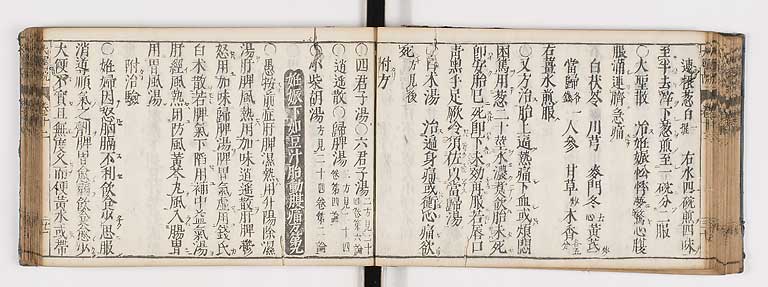 連根葱白 右水四碗煎四味
至半去滓下葱煎至一碗分二服
〇大聖散 治姙娠忪悸夢驚心腹
脹滿連臍急痛
白茯苓 川芎 麥門冬去心 黃芪炒
當歸 人參 甘草炒 木香
右薑水煎服
〇又方治胎上逼熱痛下血或煩悶
困篤用葱二十莖水濃煮飲胎未死
卽安胎已死卽下未効再服若唇口
青黑手足厥冷須佐以當歸湯
木湯 治遍身痛或衝心痛欲
死方見後
附方
〇四君子湯〇六君子湯二方見二十四卷第六論
〇逍遙散〇歸脾湯二方見二十四
〇小柴胡湯方見二十四卷第二論
姙娠下如豆汁胎動腹痛方第九
〇愚按前症肝脾濕熱用升陽除濕
湯肝脾風熱用加味逍遙散肝脾鬱
怒用加味歸脾湯脾胃氣虛用錢氏
白朮散若脾氣下陷用補中益氣湯
肝經風熱用防風黃芩丸風入腸胃
用胃風湯
附治驗
〇姙婦因怒胸膈不利飲食少思服
消導順氣之劑脾胃愈弱飲食愈少
大便不實且無度久而便黃水或帶